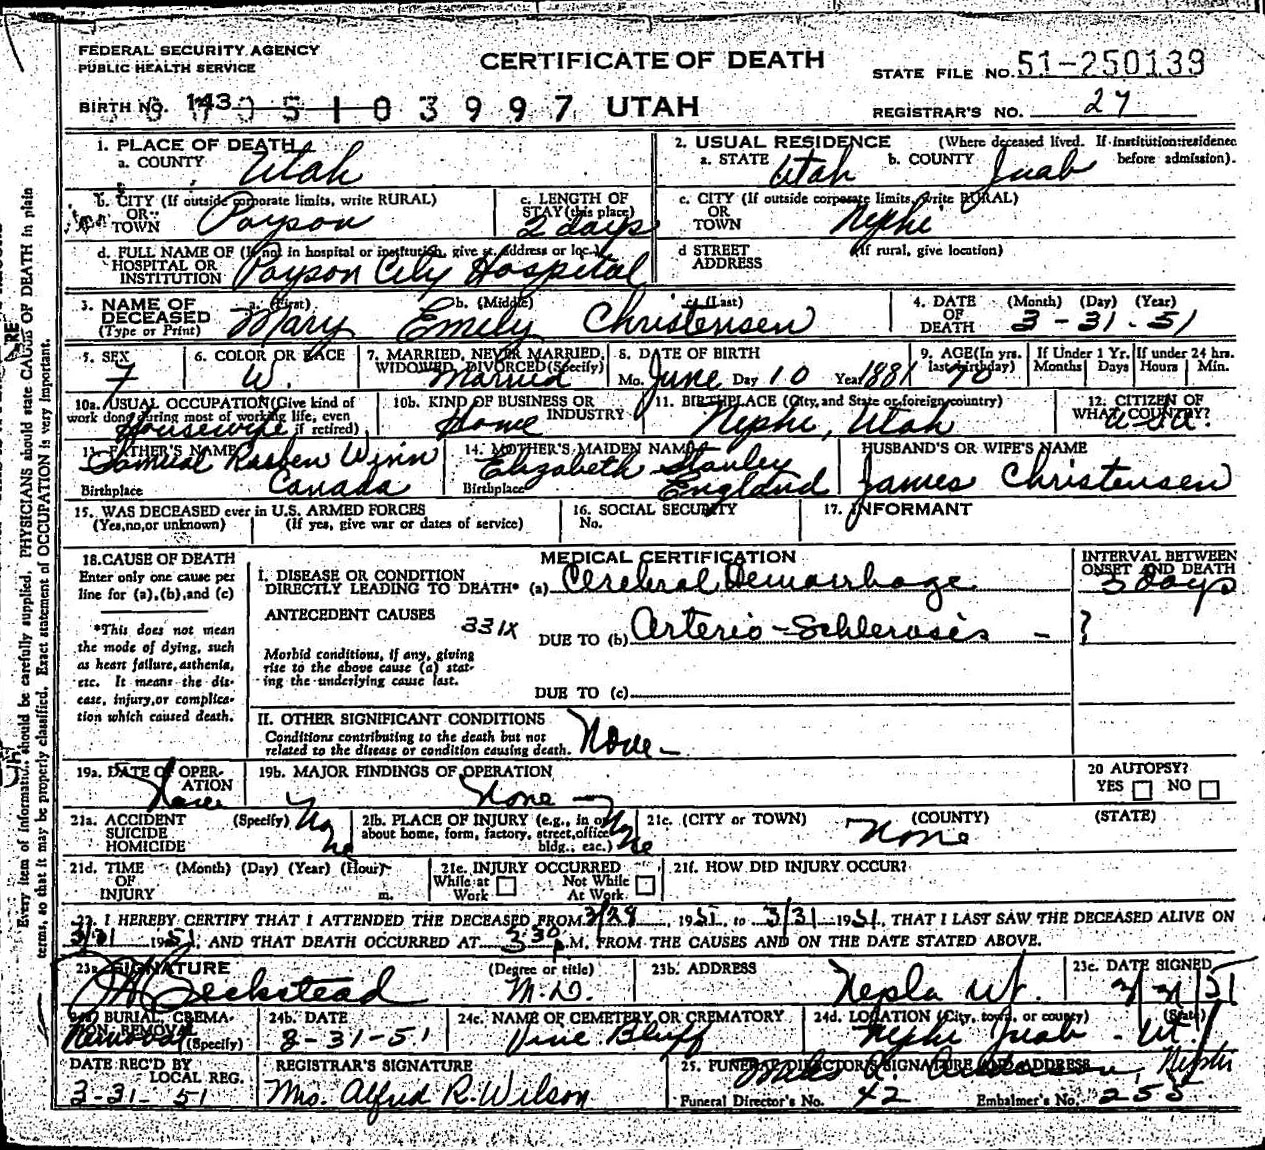 FEDERAL SECURITY AGENCY
PUBLIC HEALTH SERVICE
CERTIFICATE OF DEATH
STATE FILE NO. 51-250139
BIRTH NO. 143 05103997 UTAH
REGISTRAR'S NO. 27
1. PLACE OF DEATH
a. COUNTY Utah
2. USUAL RESIDENCE (Where deceased lived. If institution:residence before admission).
a. STATE Utah b. COUNTY Juab
b. CITY (If outside corporate limits, write RURAL) OR TOWN Payson
c. LENGTH OF STAY (this place) 2 days
c. CITY (If outside corporate limits, write RURAL) OR TOWN Nephi
d. FULL NAME OF (If not in hospital or institution, give st. address or loc.) HOSPITAL OR INSTITUTION Payson City Hospital
d STREET ADDRESS (If rural, give location)
3. NAME OF DECEASED (Type or Print) a. (First) Mary b. (Middle) Emily c. (Last) Christensen
4. DATE OF DEATH (Month) (Day) (Year) 3-31-51
5. SEX F
6. COLOR OR RACE W.
7. MARRIED, NEVER MARRIED, WIDOWED, DIVORCED (Specify) Married
8. DATE OF BIRTH Mo. June Day 10 Year 1881
9. AGE (In yrs. last birthday) 70
If Under 1 Yr. Months Days
If under 24 hrs. Hours Min.
10a. USUAL OCCUPATION (Give kind of work done during most of working life, even if retired) Housewife
10b. KIND OF BUSINESS OR INDUSTRY Home
11. BIRTHPLACE (City, and State or foreign country) Nephi, Utah
12. CITIZEN OF WHAT COUNTRY? USA.
13. FATHER'S NAME Samuel Rasben Winn
Birthplace Canada
14. MOTHER'S MAIDEN NAME Elizabeth Stanley
Birthplace England
HUSBAND'S OR WIFE'S NAME James Christensen
15. WAS DECEASED ever in U.S. ARMED FORCES (Yes,no,or unknown) (If yes, give war or dates of service)
16. SOCIAL SECURITY No.
17. INFORMANT
18. CAUSE OF DEATH
Enter only one cause per line for (a), (b), and (c)
*This does not mean the mode of dying, such as heart failure, asthenia, etc. It means the disease, injury, or complication which caused death.
MEDICAL CERTIFICATION
INTERVAL BETWEEN ONSET AND DEATH
I. DISEASE OR CONDITION DIRECTLY LEADING TO DEATH* (a) Cerebral Hemorrhage 3 days
ANTECEDENT CAUSES
331X
DUE TO (b) Arterio-Schlerosis - ?
Morbid conditions, if any, giving rise to the above cause (a) stating the underlying cause last.
DUE TO (c)
II. OTHER SIGNIFICANT CONDITIONS
Conditions contributing to the death but not related to the disease or condition causing death. None -
19a. DATE OF OPERATION None
19b. MAJOR FINDINGS OF OPERATION None
20 AUTOPSY?
YES NO
21a. ACCIDENT SUICIDE HOMICIDE (Specify) None
21b. PLACE OF INJURY (e.g., in or about home, form, factory, street, office bldg., eac.) None
21c. (CITY or TOWN) (COUNTY) (STATE) None
21d. TIME OF INJURY (Month) (Day) (Year) (Hour) m.
21e. INJURY OCCURRED While at Work Not While At Work
21f. HOW DID INJURY OCCUR?
22. I HEREBY CERTIFY THAT I ATTENDED THE DECEASED FROM 3/28, 1951, to 3/31 1951, THAT I LAST SAW THE DECEASED ALIVE ON
3/31 1951, AND THAT DEATH OCCURRED AT 3:30 P M, FROM THE CAUSES AND ON THE DATE STATED ABOVE.
23a. SIGNATURE Beckstead (Degree or title) M.D.
23b. ADDRESS Ut.
23c. DATE SIGNED
24a. BURIAL, CREMATION, REMOVAL (Specify) Removal
24b. DATE 3-31-51
24c. NAME OF CEMETERY OR CREMATORY Vine Bluff
24d. LOCATION (City, town, or county) (State) Nephi Juab - Ut.
DATE REC'D BY LOCAL REG. 3-31-51
REGISTRAR'S SIGNATURE Mrs. Alfred R. Wilson
25. FUNERAL DIRECTOR'S SIGNATURE AND ADDRESS Anderson, Nephi
Funeral Director's No. 42 Embalmer's No. 255
Every item of information should be carefully supplied. PHYSICIANS should state CAUSE OF DEATH in plain
terms, so that it may be properly classified. Exact statement of OCCUPATION is very important.